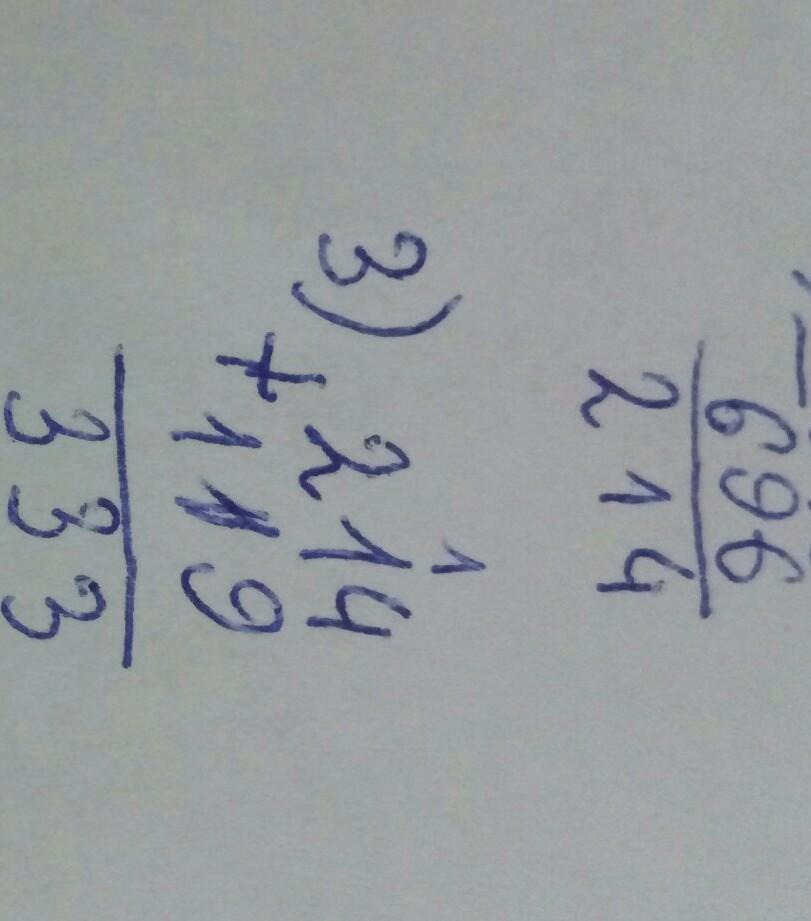 696
214
3)
1
+ 214
119
333